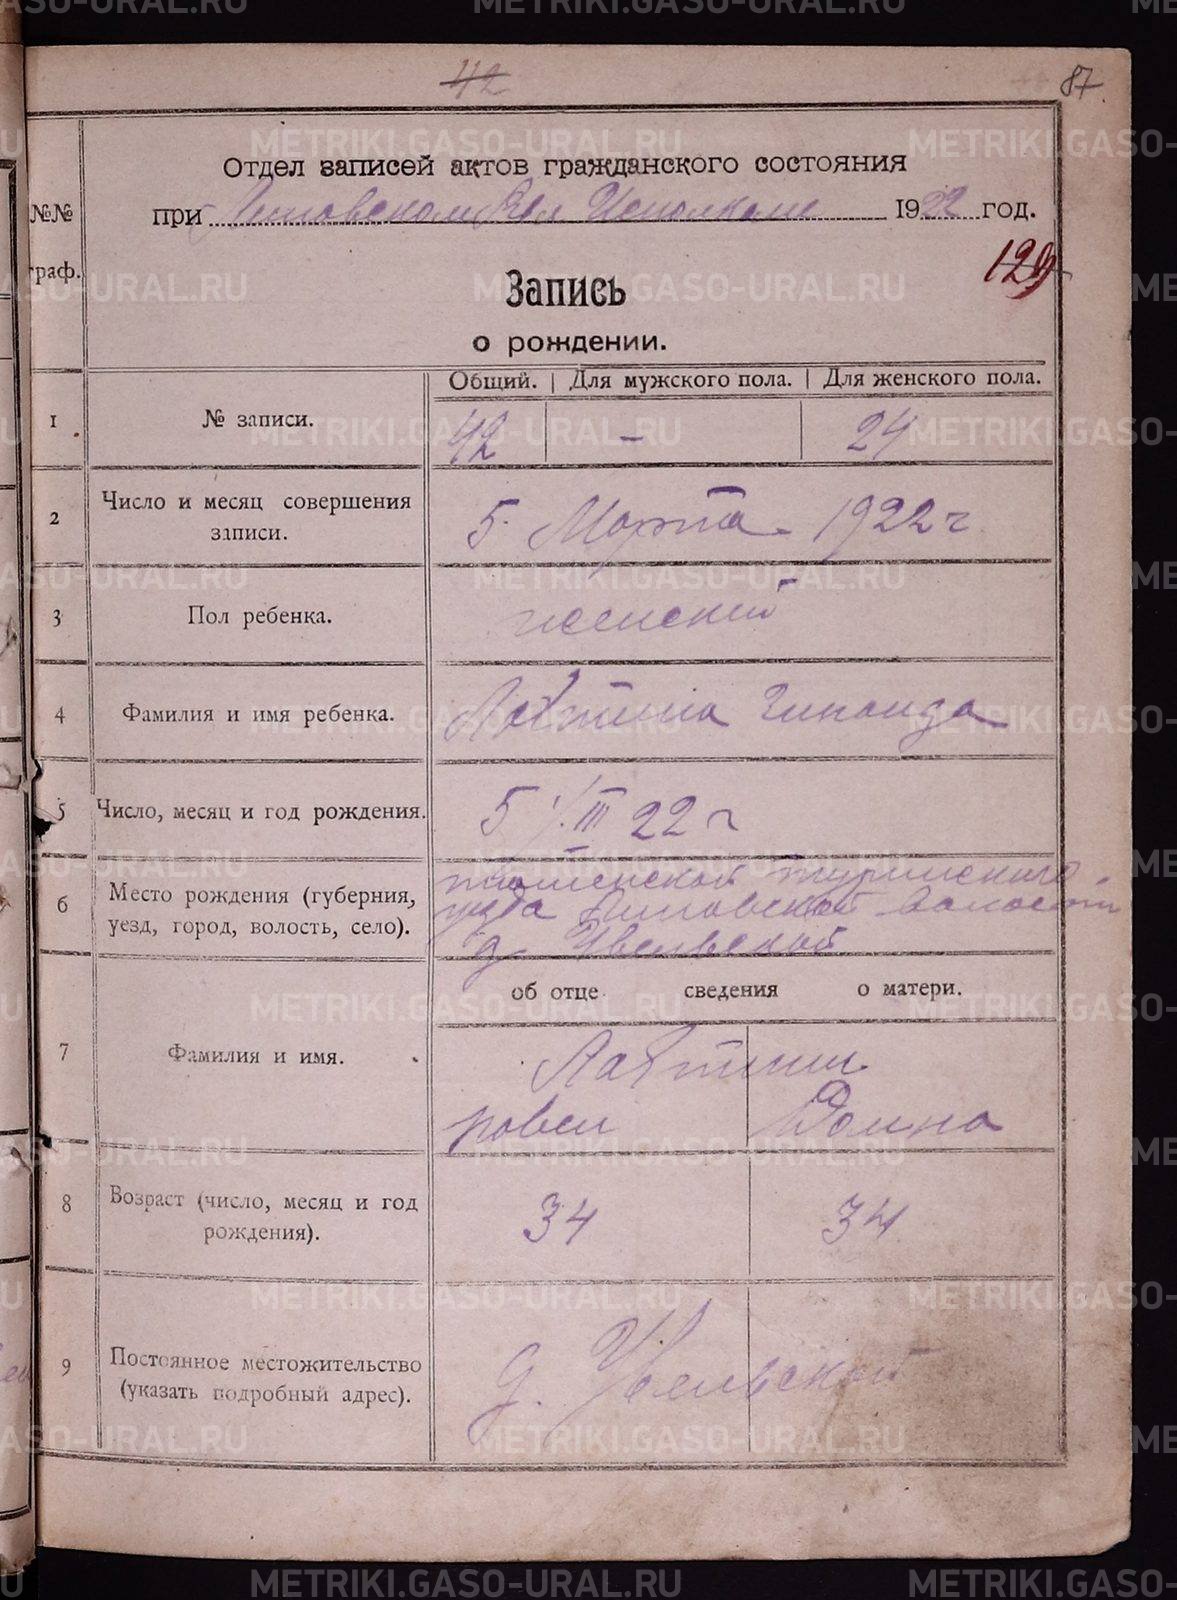 42
87
Отдел записей актов гражданского состояния
при Липовском Вол Исполкоме 1922 год.
№№
граф.
129
Запись
о рождении.
Общий. | Для мужского пола. | Для женского пола.
1 № записи. 42 – 24
2 Число и месяц совершения
записи. 5 Марта 1922 г
3 Пол ребенка. женский
4 Фамилия и имя ребенка. Лаптина Зинаида
5 Число, месяц и год рождения. 5/III 22 г
6 Место рождения (губерния,
уезд, город, волость, село).
тюменской туринского
уезда Липовской волости
д.
об отце сведения о матери.
7 Фамилия и имя.
павел Домна
8 Возраст (число, месяц и год
рождения). 34 34
9 Постоянное местожительство
(указать подробный адрес). д.
METRIKI.GASO-URAL.RU